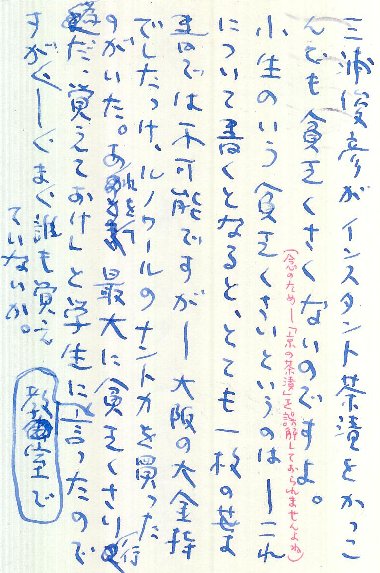 三浦俊彦がインスタント茶漬をかっこ
んでも貧乏くさくないのですよ。
(念のため―「京の茶漬」を誤解しておられませんよね)
小生のいう貧乏くさいというのは―これ
について書くとなると、とても一枚の葉
書では不可能ですが―大阪の大金持
でしたっけ、ルノワールのナントカを買った
のがいた。あれを 最大に貧乏くさい行
だ、覚えておけ」と学生に言ったので
教室で
すがぐーぐまぐ誰も覚え
ていないか。